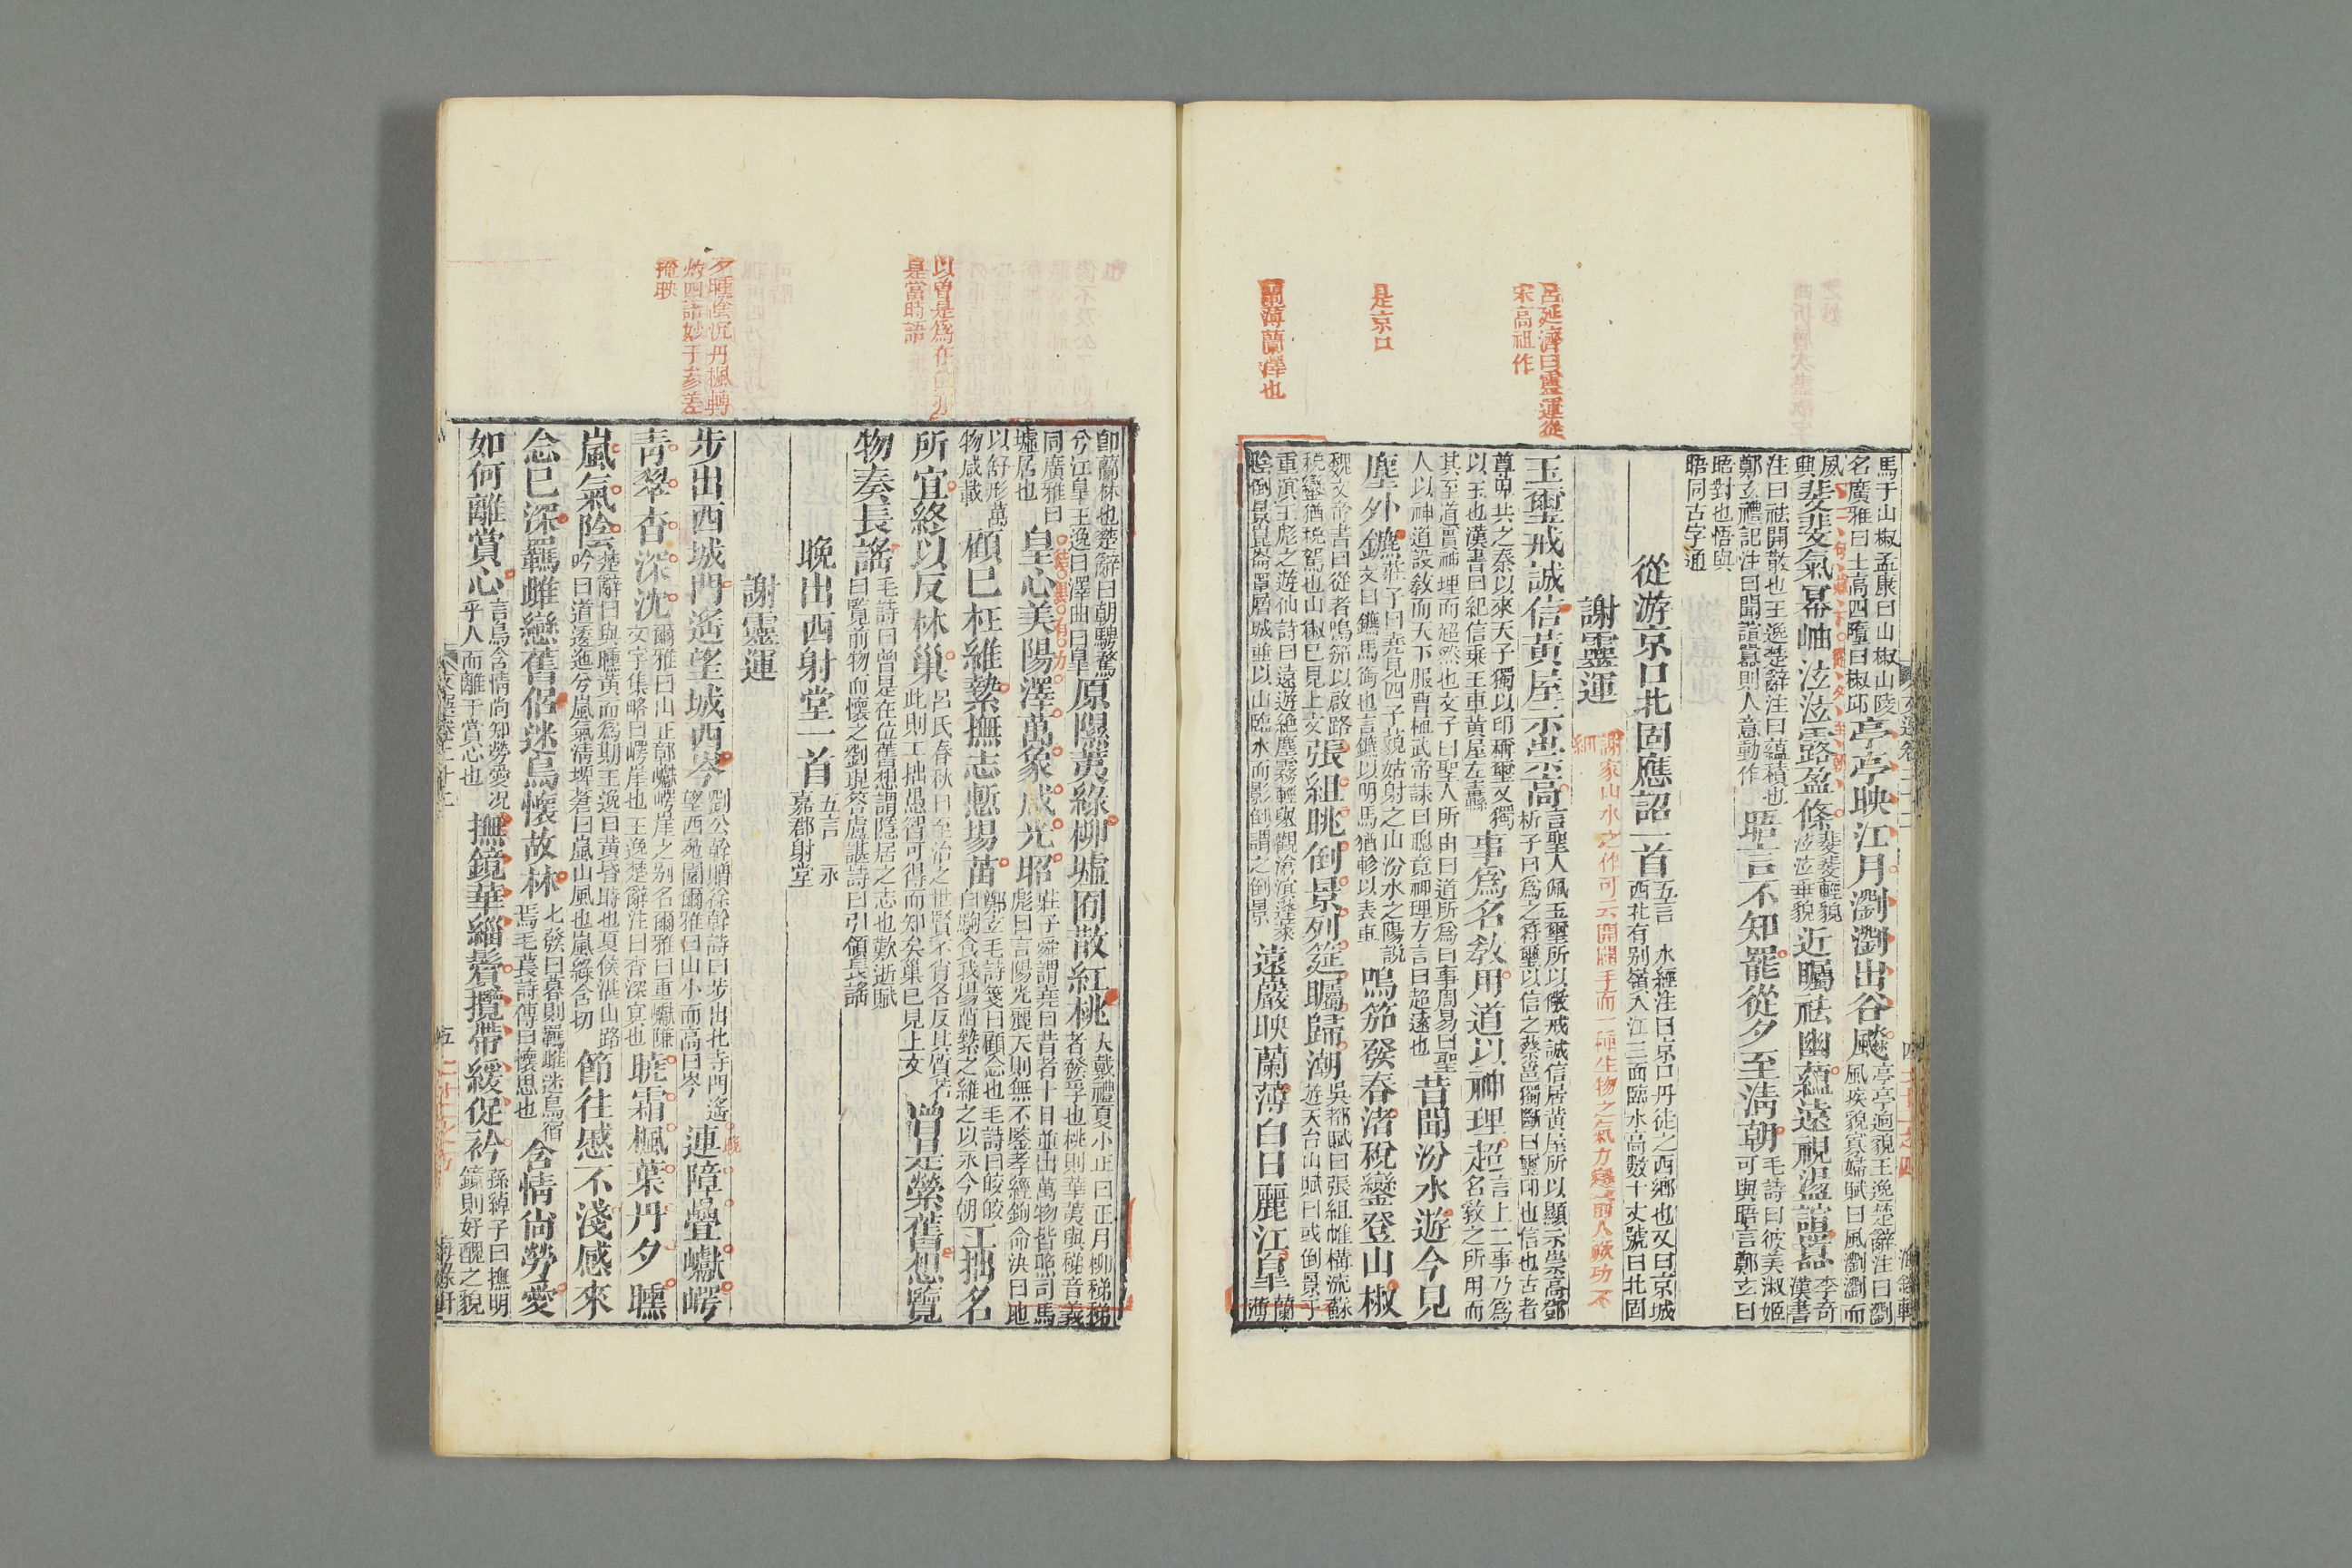 馬于山椒孟康曰山椒山陵
名廣雅曰土高四墮曰椒邱
亭亭映江月瀏瀏出谷飈
亭亭逈貌王逸楚辭注曰瀏
風疾貌寡婦賦曰風瀏瀏而
夙
興
斐斐氣幂岫泫泫露盈條
斐斐輕貌
泫泫垂貌
近矚祛幽蘊遠視盪諠囂
李奇
漢書
注曰祛開散也王逸楚辭注曰蘊積也
鄭玄禮記注曰聞諠囂則人意動作
晤言不知罷從夕至淸朝
毛詩曰彼美淑姬
可與晤言鄭玄曰
晤對也悟與
晤同古字通
從游京口北固應詔一首
五言 水經注曰京口丹徒之西鄉也又曰京城
西北有别嶺入江三面臨水高數十丈號曰北固
謝靈運
謝家山水之作可云開闢手而一種生物之氣力
呂延濟曰靈運從
宋高祖作
玉璽戒誠信黃屋示崇高
言聖人佩玉璽所以儆戒誠信居黃屋所以顯示崇高鄧
析子曰爲之符璽以信之蔡邕獨斷曰璽印也信也古者
尊卑共之秦以來天子獨以印稱璽又獨
以玉也漢書曰紀信乗王車黃屋左纛
事爲名敎用道以神理超
言上二事乃爲
名敎之所用而
其至道實神理而超然也文子曰聖人所由曰道所爲曰事周易曰聖
人以神道設敎而天下服曹植武帝誄曰聰竟神理方言曰超遠也
昔聞汾水遊今見
塵外鑣
莊子曰堯見四子藐姑射之山汾水之陽說
文曰鑣馬銜也言鑣以明馬猶軫以表車
是京口
鳴笳發春渚稅鑾登山椒
魏文帝書曰從者鳴笳以啟路
稅鑾猶稅駕也山椒已見上文
張組眺倒景列筵矚歸潮
吳都賦曰張組帷構流蘇
遊天台山賦曰或倒景于
重溟王彪之遊仙詩曰遠遊絶塵霧輕舉觀滄溟蓬萊
陰倒景崑崙罩層城並以山臨水而影倒謂之倒景
遠巖映蘭薄白日麗江皋
蘭
薄
薄蘭薄也
即蘭林也楚辭曰朝騁騖
兮江皐王逸曰澤曲曰皐
原隰荑綠柳墟囿散紅桃
大戴禮夏小正曰正月柳稊稊
者發孚也桃則華荑與稊音義
同廣雅曰
墟居也
皇心美陽澤萬象咸光昭
莊子舜謂堯曰昔者十日並出萬物皆照司馬
彪曰言陽光麗天則無不鑒孝經鉤命決曰地
以舒形萬
物咸載
顧己枉維縶撫志慙場苗
鄭玄毛詩箋曰顧念也毛詩曰皎皎
白駒食我場苗縶之維之以永今朝
工拙各
所宜終以反林巢
呂氏春秋曰至治之世賢不肖各反其質若
此則工拙愚智可得而知矣巢已見上文
曾是縈舊想覽
以曾是爲在
是當時語
物奏長謠
毛詩曰曾是在位舊想謂隱居之志也歎逝賦
曰覽前物而懷之劉琨答盧諶詩曰引領長謠
晚出西射堂一首
五言 永
嘉郡射堂
謝靈運
步出西城門遙望城西岑
劉公幹贈徐幹詩曰步出北寺門遙
望西苑園爾雅曰山小而高曰岑
連障疊巘崿
夕曛陰沉丹楓轉
妙四語妙于參差
掩映
靑翠杳深沈
爾雅曰山正鄣巘崿崖之别名爾雅曰重巘隒
文字集略曰崿崖也王逸楚辭注曰杳深冥也
曉霜楓葉丹夕曛
嵐氣陰
楚辭曰與曛黃而爲期王逸曰黃昏時也夏侯湛山路
吟曰道逶迤兮嵐氣淸埤蒼曰嵐山風也嵐綠含切
節往慼不淺感來
念已深羈雌戀舊侶迷鳥懷故林
七發曰暮則羈雌迷鳥宿
焉毛萇詩傳曰懷思也
含情尙勞愛
如何離賞心
言鳥含情尚知勞愛况
乎人而離于賞心也
撫鏡華緇鬢攬帶緩促衿
孫綽子曰撫明
鏡則好醜之貌